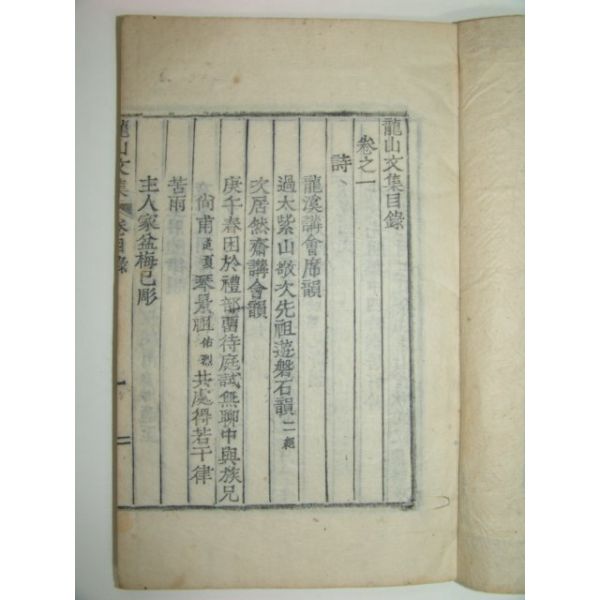 龍山文集目錄
卷之一
詩
龍溪講會席韻
過太紫山敬次先祖遊磐石韻 二絕
次居然齋講會韻
庚午春困於禮部留待庭試無聊中與族兄
尙甫 琴景祖 佑烈 共處得若干律
苦雨
主人家盆梅已彫
龍山文集 卷目錄 一